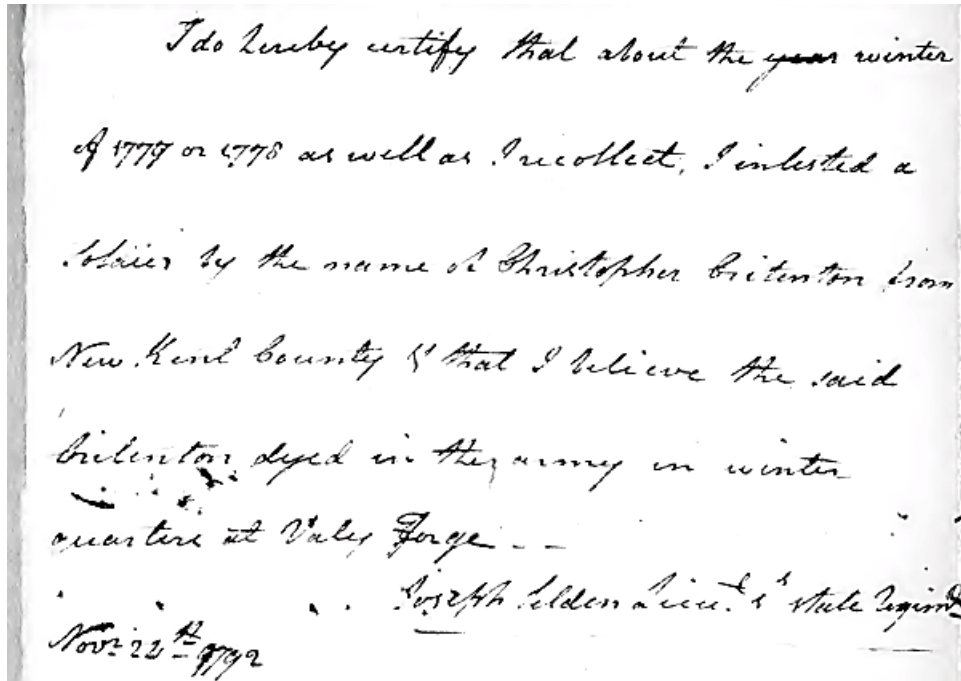 I do hereby certify that about the year winter
of 1777 or 1778 as well as I recollect, I inlested a
Soldier by the name of Christopher Critenton from
New Kent County & that I believe the said
Critenton dyed in the army in winter
quarters at Valey Forge - -
Joseph Selden Lieut. state Regimt
Novr. 22th 1792